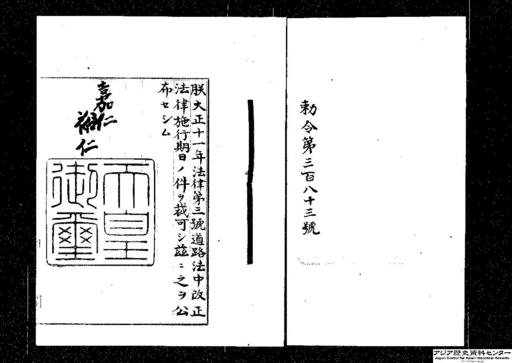 勅令第三百八十三號
朕大正十一年法律第三號道路法中改正
法律施行期日ノ件ヲ裁可シ茲ニ之ヲ公
布セシム
嘉仁
裕仁
天皇
御璽
アジア歴史資料センター
Japan Center for Asian Historical Records